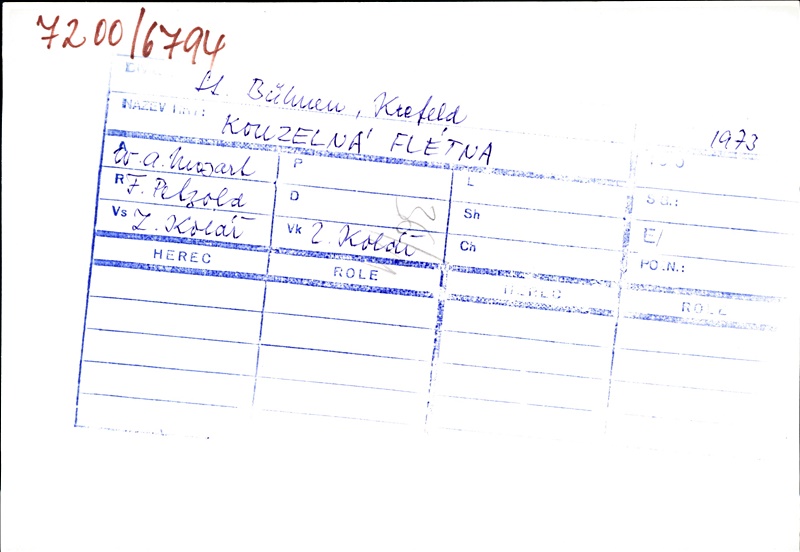 7200/6794
St. Bühnen, Krefeld
NÁZEV HRY: 1973
KOUZELNÁ FLÉTNA
W. A. Mozart P L
R F. Petzold D Sh
Vs Z. Kolář Vk Z. Kolář Ch E/
PO.N.:
HEREC ROLE HEREC ROLE